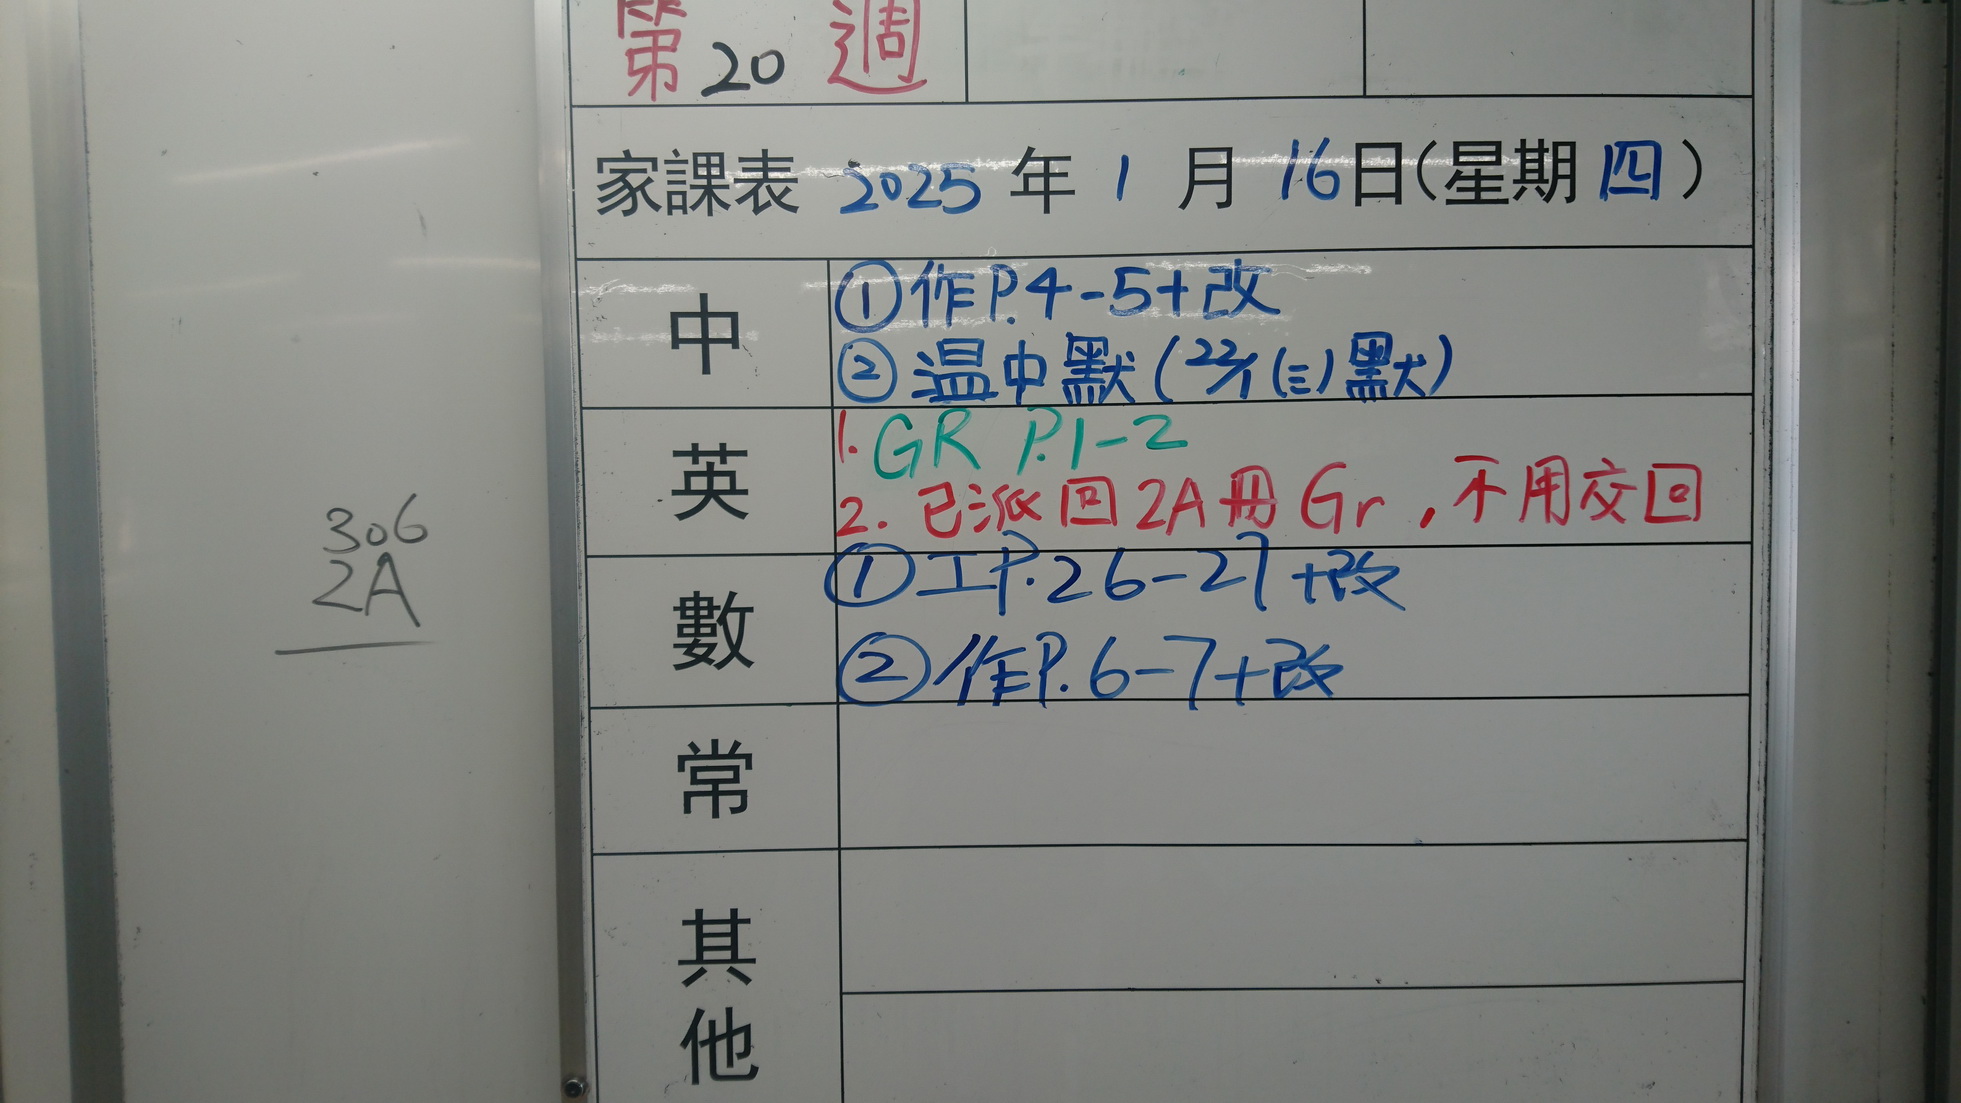 第20週
家課表 2025年1月16日(星期四)
中
①作P.4-5+改
②温中默(22/1(三)默)
英
1. GR P.1-2
2. 已派回2A冊Gr,不用交回
數
①工P.26-27+改
②作P.6-7+改
常
其他
306
2A